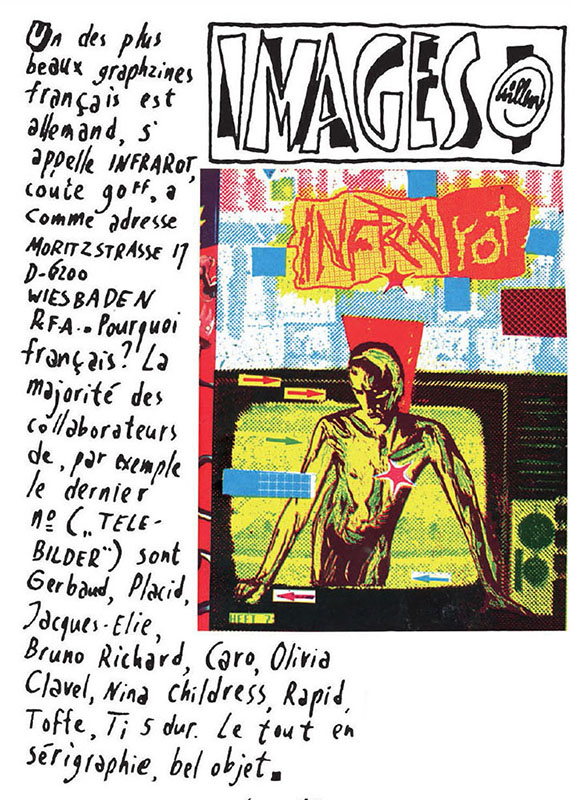 Un des plus
beaux graphzines
français est
allemand, s'
appelle INFRAROT,
coûte 90FF, a
comme adresse
MORITZSTRASSE 17
D-6200
WIESBADEN
R.F.A.. Pourquoi
français? La
majorité des
collaborateurs
de, par exemple
le dernier
nº („TELE-
BILDER") sont
Gerbaud, Placid,
Jacques-Elie,
Bruno Richard, Caro, Olivia
Clavel, Nina childress, Rapid,
Toffe, Ti 5 dur. Le tout en
sérigraphie, bel objet.
IMAGES
Willem
INFRA rot
HEFT 7